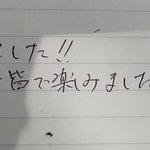 した!!
皆で楽しみました